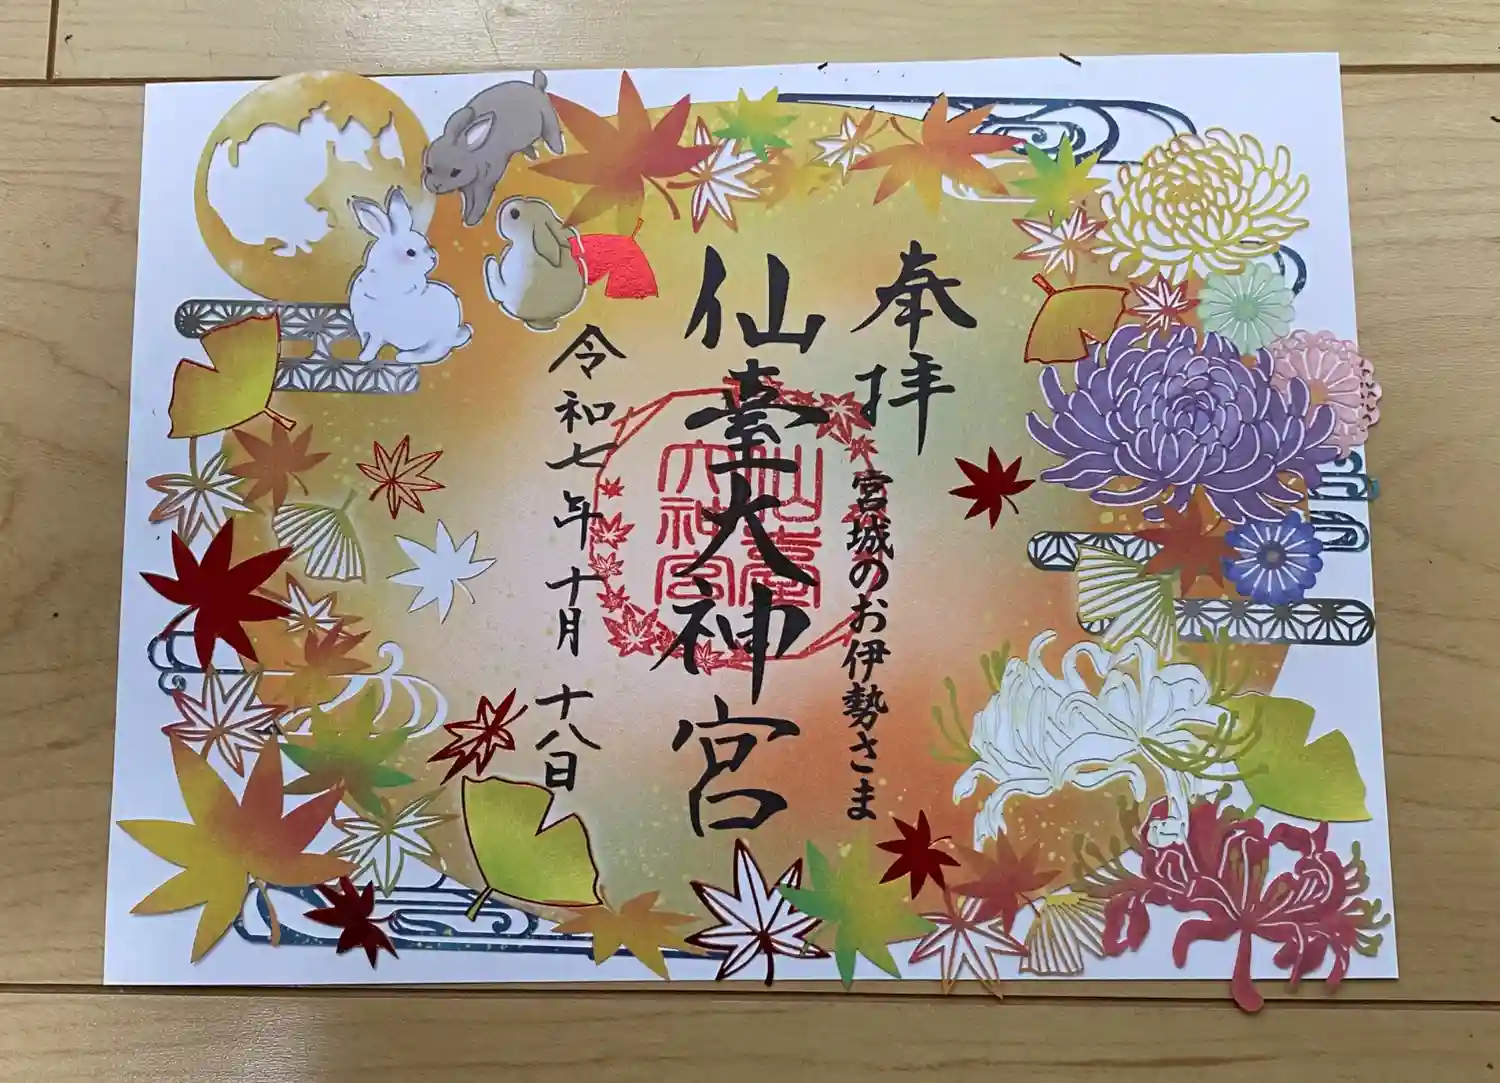 奉拝
宮城のお伊勢さま
仙臺大神宮
仙臺
大神宮
令和七年十月十八日